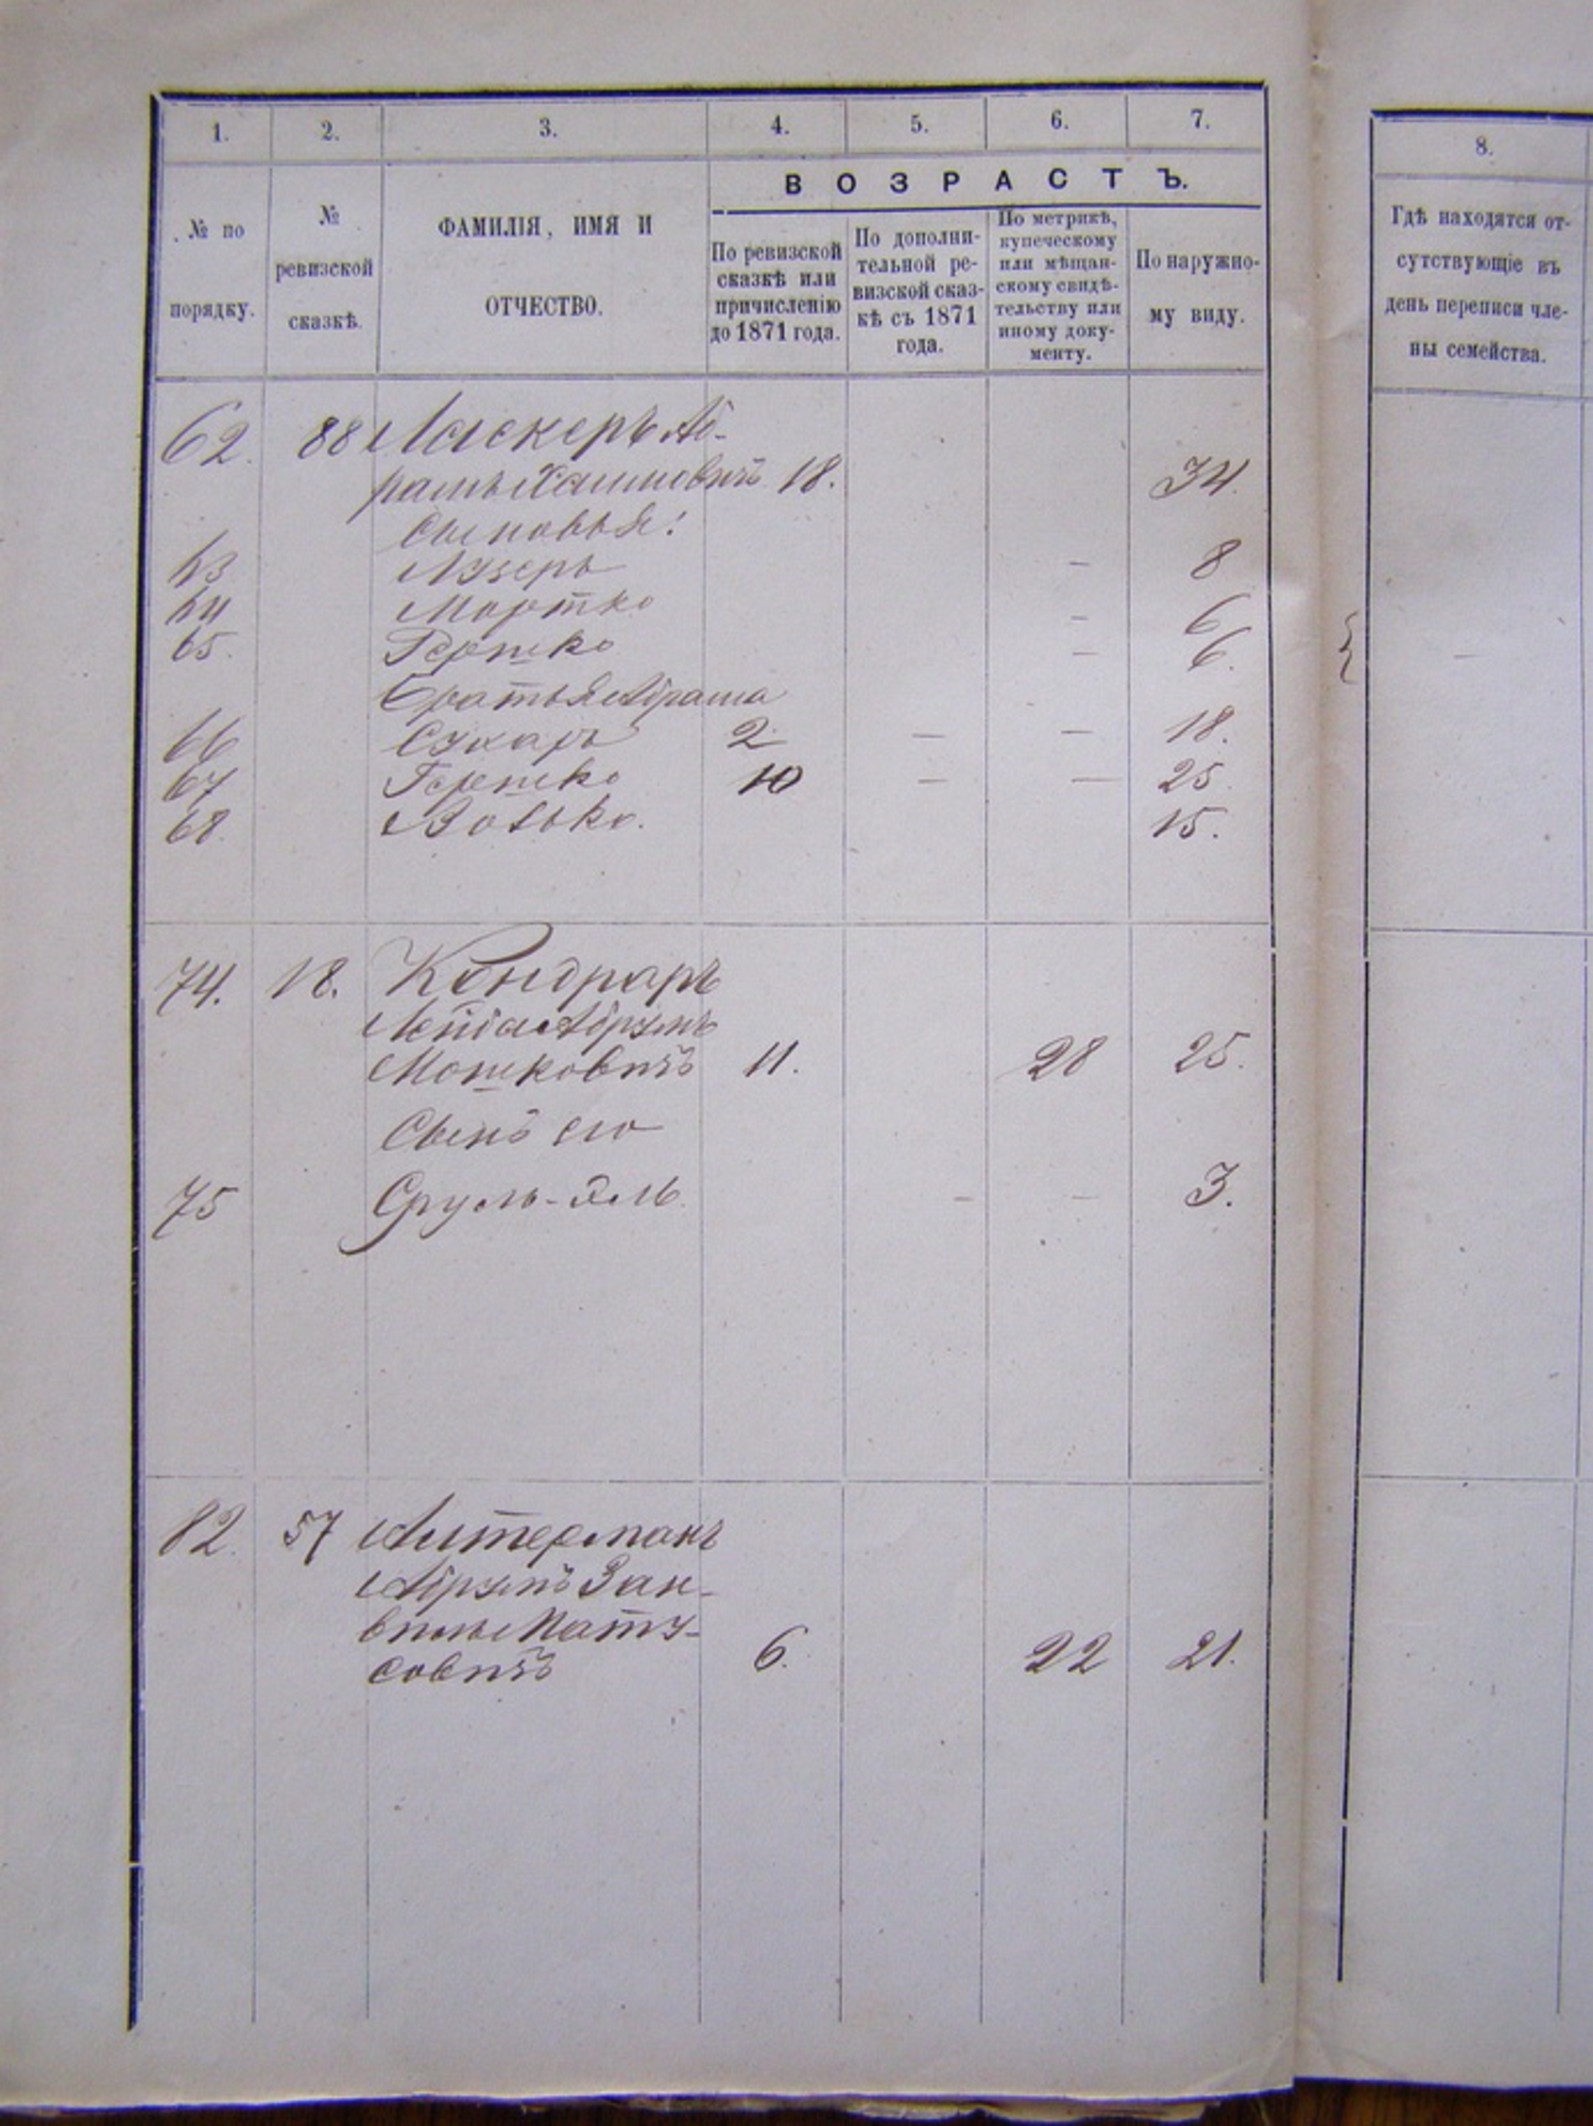 1. 2. 3. 4. 5. 6. 7.
№ по порядку.
№ ревизской сказкѣ.
ФАМИЛІЯ, ИМЯ И
ОТЧЕСТВО.
ВОЗРАСТЪ.
По ревизской
сказкѣ или
причисленію
до 1871 года.
По дополни-
тельной ре-
визской сказ-
кѣ съ 1871
года.
По метрикѣ,
купеческому
или мѣщан-
скому свидѣ-
тельству или
иному доку-
менту.
По наружно-
му виду.
62. 88 Ласкеръ Аб-
рамъ Хаимовичъ 18. 34.
Сыновья:
63 Лузеръ — 8
64 Мортко — 6
65. Гершко — 6.
братья Абрама
66 2 — — 18.
67 Гершко 10 — — 25.
68. Волько. 15.
74. 18. Кондраръ
Лейба Абрумъ
Мошковичъ 11. 28 25.
Сынъ его
75 Сруль-Эль. — — 3.
82. 57 Литерманъ
Абрумъ Зан-
виль Мату-
совичъ 6. 22 21.
8.
Гдѣ находятся от-
сутствующіе въ
день переписи чле-
ны семейства.
—